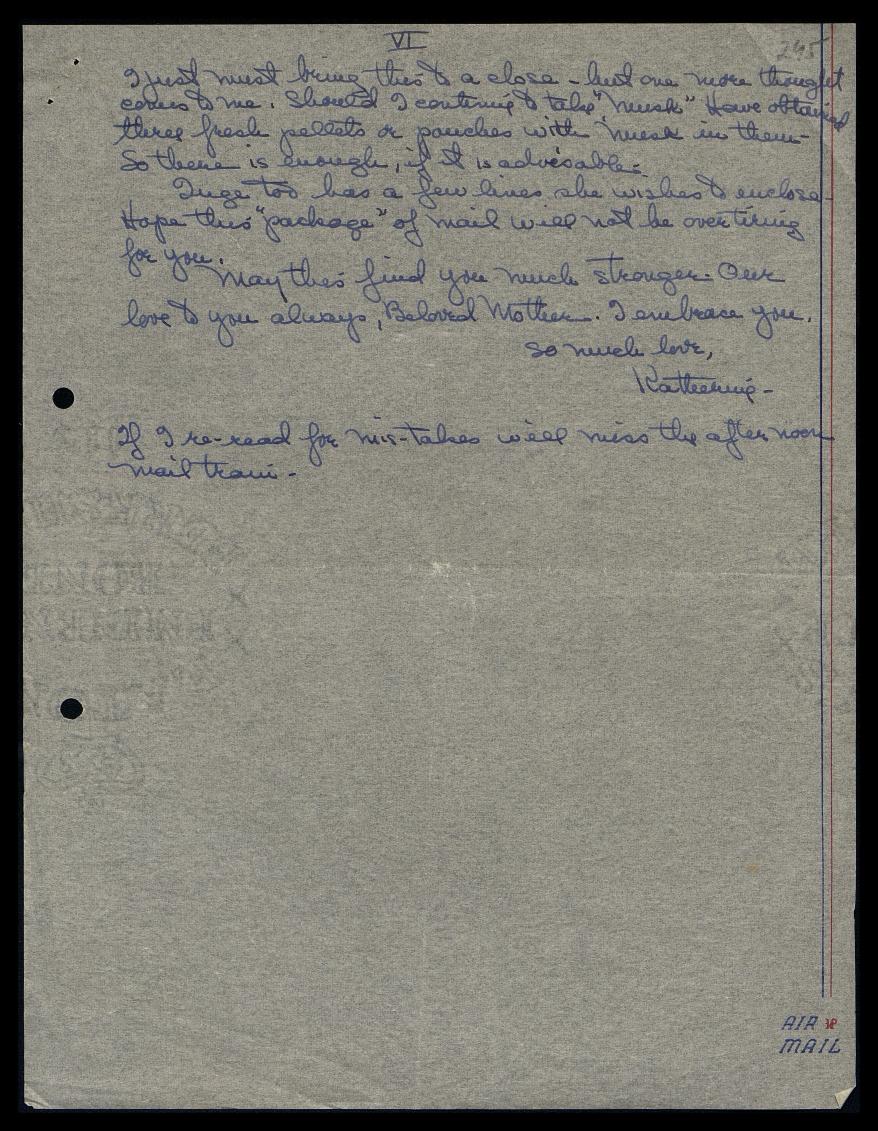 VI
245
I just must bring this to a close - but one more thought
comes to me. Should I continue to take "musk" Have obtained
three fresh pellets or pouches with musk in them -
So there is enough, if it is advisable.
Inge too has a few lines she wishes to enclose.
Hope this "package" of mail will not be overtiring
for you.
May this find you much stronger. Our
love to you always, Beloved Mother. I embrace you.
So much love,
Katherine -
If I re-read for mis-takes will miss the afternoon
mail train -
AIR
MAIL